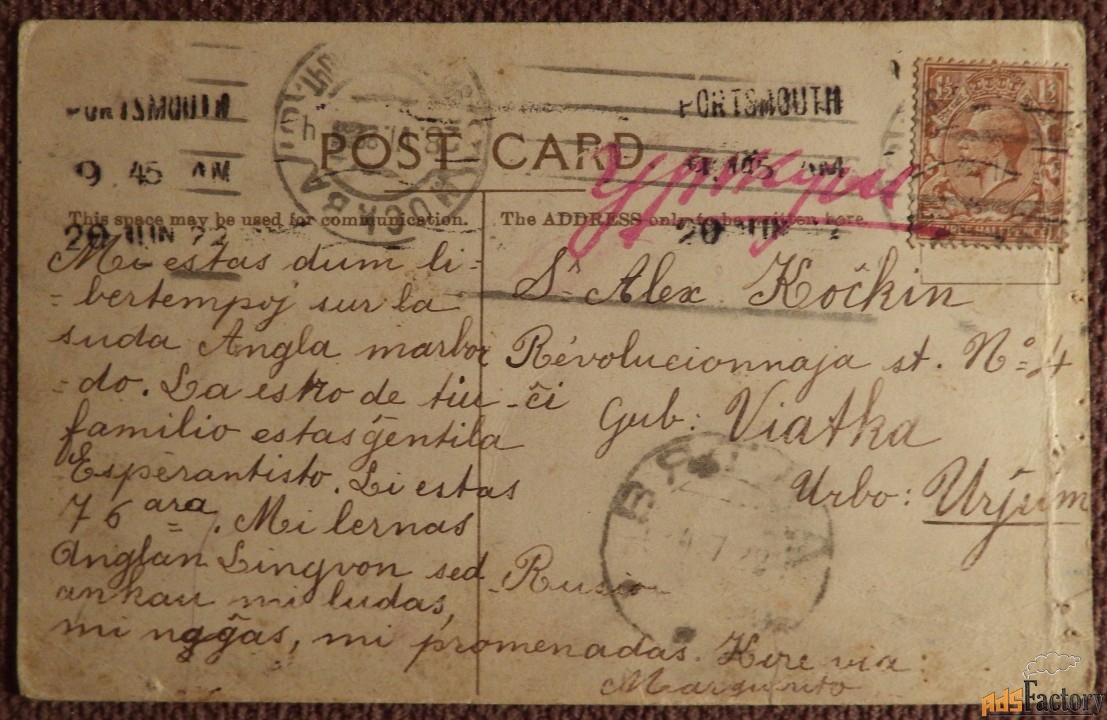 PORTSMOUTH
9 45 AM
20 JUN 22
PORTSMOUTH
9. 45 AM
20 JUN 22
МОСКВА
POST CARD
Уржум
This space may be used for communication.
The ADDRESS only to be written here.
Mi estas dum li-
-bertempoj sur la
suda Angla marbor
-do. La estro de tiu-ĉi
familio estas ĝentila
Esperantisto. Li estas
76 ara. Mi lernas
Anglan Lingvon sed
ankau mi ludas,
mi naĝas, mi promenadas. Kore via
Sº Alex. Kočkin
Révolucionnaja st. Nº 4
Gub: Viatka
Urbo: Urjum
Rusio
ВЯТКА
7 22
AdsFactory